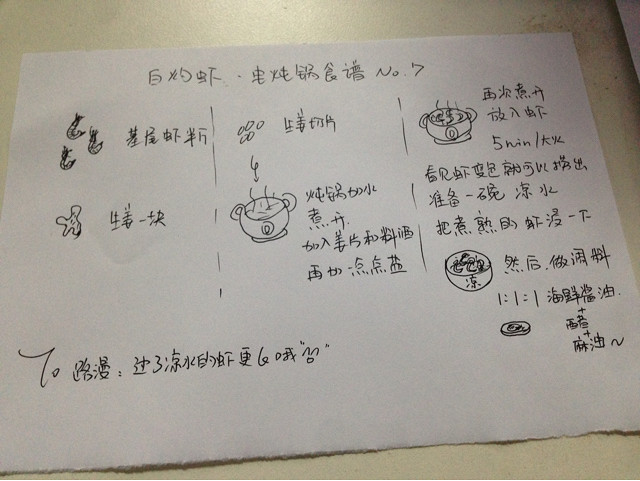 白灼虾·电炖锅食谱 No.7
基尾虾半斤
生姜一块
生姜切片
炖锅加水
煮开
加入姜片和料酒
再加一点点盐
再次煮开
放入虾
5min/大火
看见虾变色就可以捞出
准备一碗 凉水
把煮熟的虾浸一下
凉
然后.做调料
1:1:1 海鲜酱油
+
醋
+
麻油~
To 路漫：过了凉水的虾更